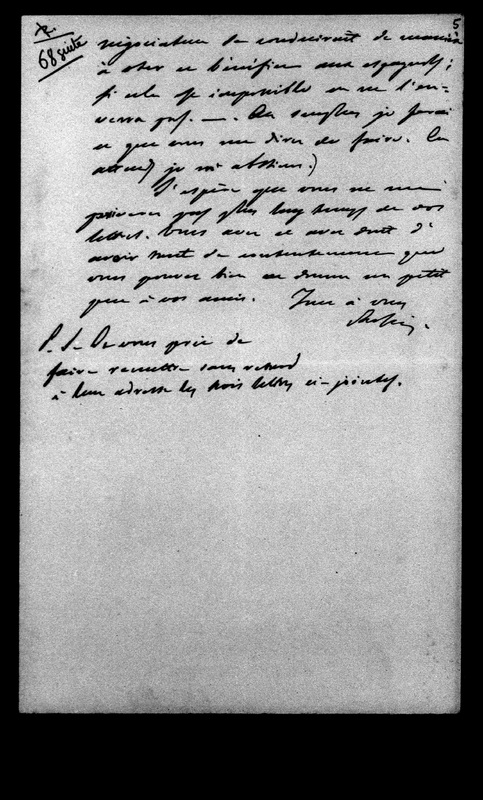 5
68 suite
négociateur se conduirait de manière
à oter ce bénéfice aux espagnols;
si cela est impossible on ne l'en-
verra pas. —. Au surplus je ferai
ce que vous me direz de faire. En
attend je m'abstiens.)
J'espère que vous ne me
priverez pas plus long temps de vos
lettres. Vous avez et avez droit d'
avoir tant de contentement que
vous pouvez bien en donner un petit
peu à vos amis. Tout à vous
P. S. On vous prie de
faire remettre sans retard
à leur adresse les trois lettres ci-jointes.